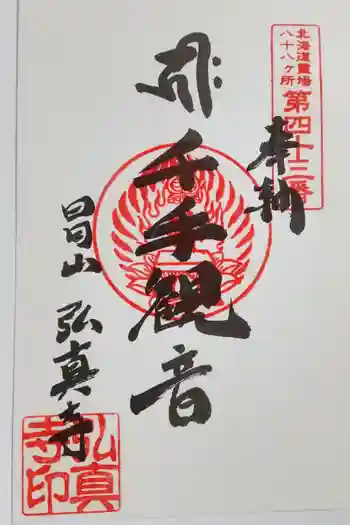 北海道霊場
八十八ヶ所
第四十三番
奉納
千手観音
弘真寺
弘真
寺印